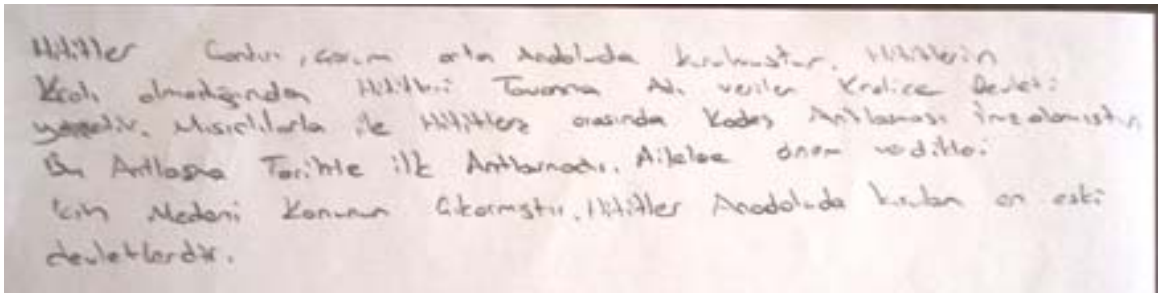 Hititler Çankırı, Çorum orta Anadoluda kurulmuştur. Hititlerin
Kralı olmadığından Hititleri Tavanna Adı verilen Kraliçe Devleti
yönetir. Mısırlılarla ile Hititlerz arasında Kadeş Antlaması İmzalamıştır.
Bu Antlaşma Tarihte ilk Antlarmadı. Aileloe önem verdikleri
için Medeni Konunun Çıkarmıştır. Hititler Anadoluda kurulan en eski
devletlerdir.